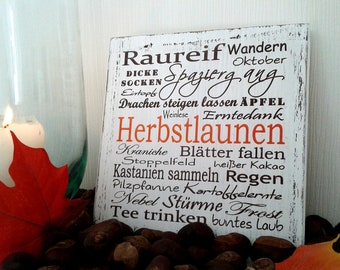 Raureif Wandern
Oktober
DICKE SOCKEN Spaziergang
Eintopf
Drachen steigen lassen ÄPFEL
Weinlese Erntedank
Herbstlaunen
Kraniche Blätter fallen
Stoppelfeld heißer Kakao
Kastanien sammeln Regen
Pilzpfanne Kartoffelernte
Nebel Stürme Frost
Tee trinken buntes Laub